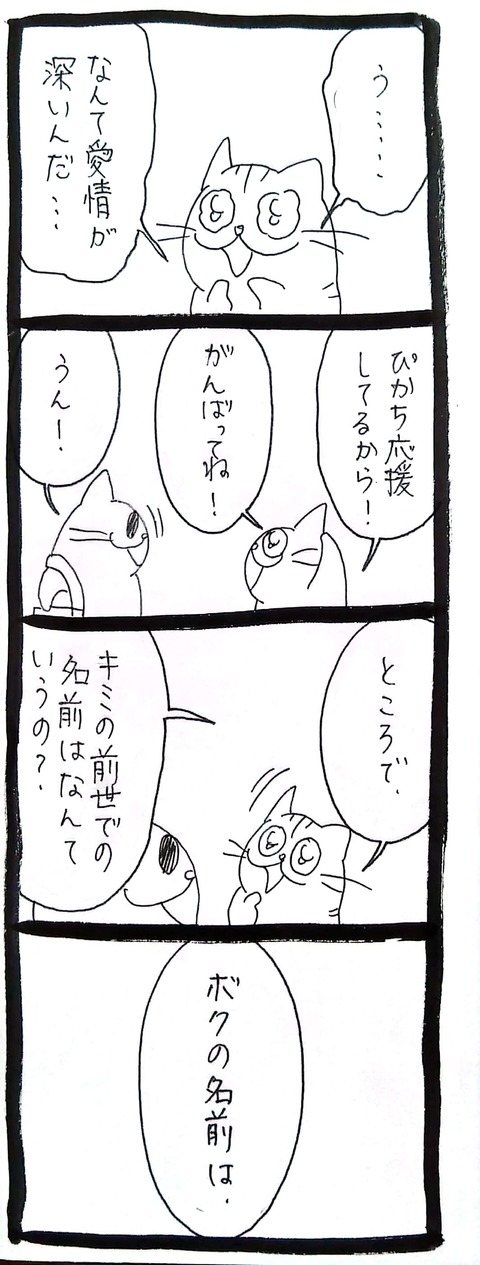 う…‥
なんて愛情が
深いんだ…
ぴかち応援
してるから!
がんばってね!
うん!
ところで、
キミの前世での
名前はなんて
いうの?
ボクの名前は、